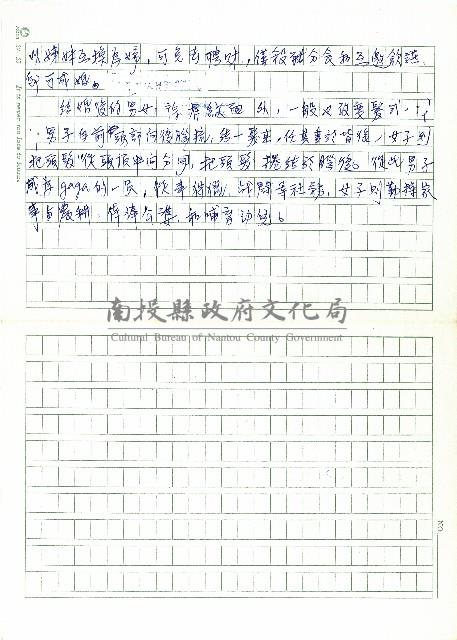 以姊妹互換為婚，可免去聘財，僅殺豬分食和互邀飲酒
即可成婚。
結婚後的男女，除黥紋面外，一般又改變髮式
男子自前額訂向後腦梳，結一髮束，任其垂於背後，女子則
把頭髮從頭頂中間分開，把頭髮捲結於腦後。從此男子
成為gaga的一民，從事狩獵、戰鬥等社詰，女子則勤操家
事與農耕，侍奉公婆，和哺育幼兒。
南投縣政府文化局
Cultural Bureau of Nantou County Government